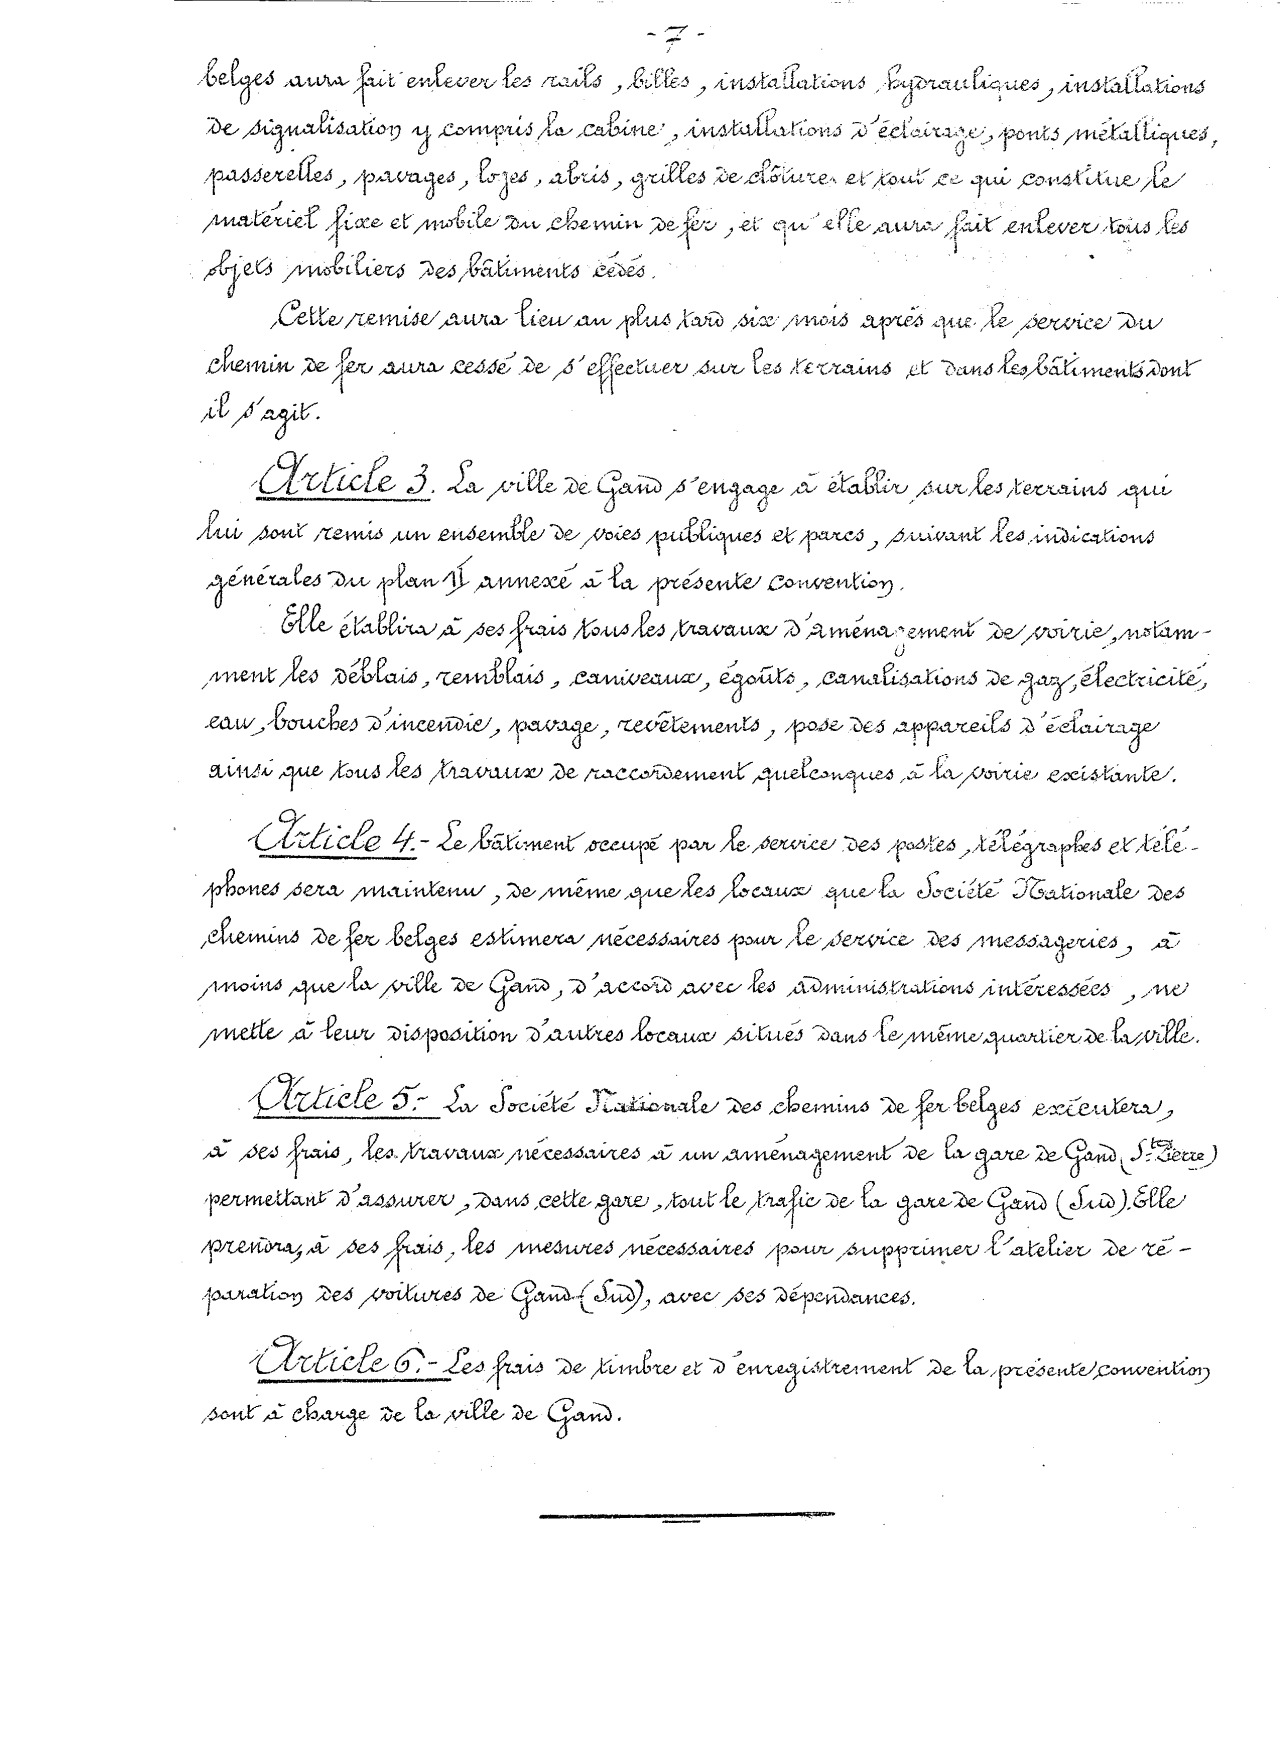 - 7 -
belges aura fait enlever les rails, billes, installations hydrauliques, installations
de signalisation y compris la cabine, installations d'éclairage, ponts métalliques,
passerelles, pavages, loges, abris, grilles de clôture et tout ce qui constitue le
matériel fixe et mobile du chemin de fer, et qu'elle aura fait enlever tous les
objets mobiliers des bâtiments cédés.
Cette remise aura lieu au plus tard six mois après que le service du
chemin de fer aura cessé de s'effectuer sur les terrains et dans les bâtiments dont
il s'agit.
Article 3. La ville de Gand s'engage à établir sur les terrains qui
lui sont remis un ensemble de voies publiques et parcs, suivant les indications
générales du plan II annexé à la présente convention.
Elle établira à ses frais tous les travaux d'aménagement de voirie, notam-
ment les déblais, remblais, caniveaux, égoûts, canalisations de gaz, électricité,
eau, bouches d'incendie, pavage, revêtements, pose des appareils d'éclairage
ainsi que tous les travaux de raccordement quelconques à la voirie existante.
Article 4.- Le bâtiment occupé par le service des postes, télégraphes et télé-
phones sera maintenu, de même que les locaux que la Société Nationale des
chemins de fer belges estimera nécessaires pour le service des messageries, à
moins que la ville de Gand, d'accord avec les administrations intéressées, ne
mette à leur disposition d'autres locaux situés dans le même quartier de la ville.
Article 5.- La Société Nationale des chemins de fer belges exécutera,
à ses frais, les travaux nécessaires à un aménagement de la gare de Gand (St. Pierre)
permettant d'assurer, dans cette gare, tout le trafic de la gare de Gand (Sud). Elle
prendra, à ses frais, les mesures nécessaires pour supprimer l'atelier de ré-
paration des voitures de Gand (Sud), avec ses dépendances.
Article 6.- Les frais de timbre et d'enregistrement de la présente convention
sont à charge de la ville de Gand.